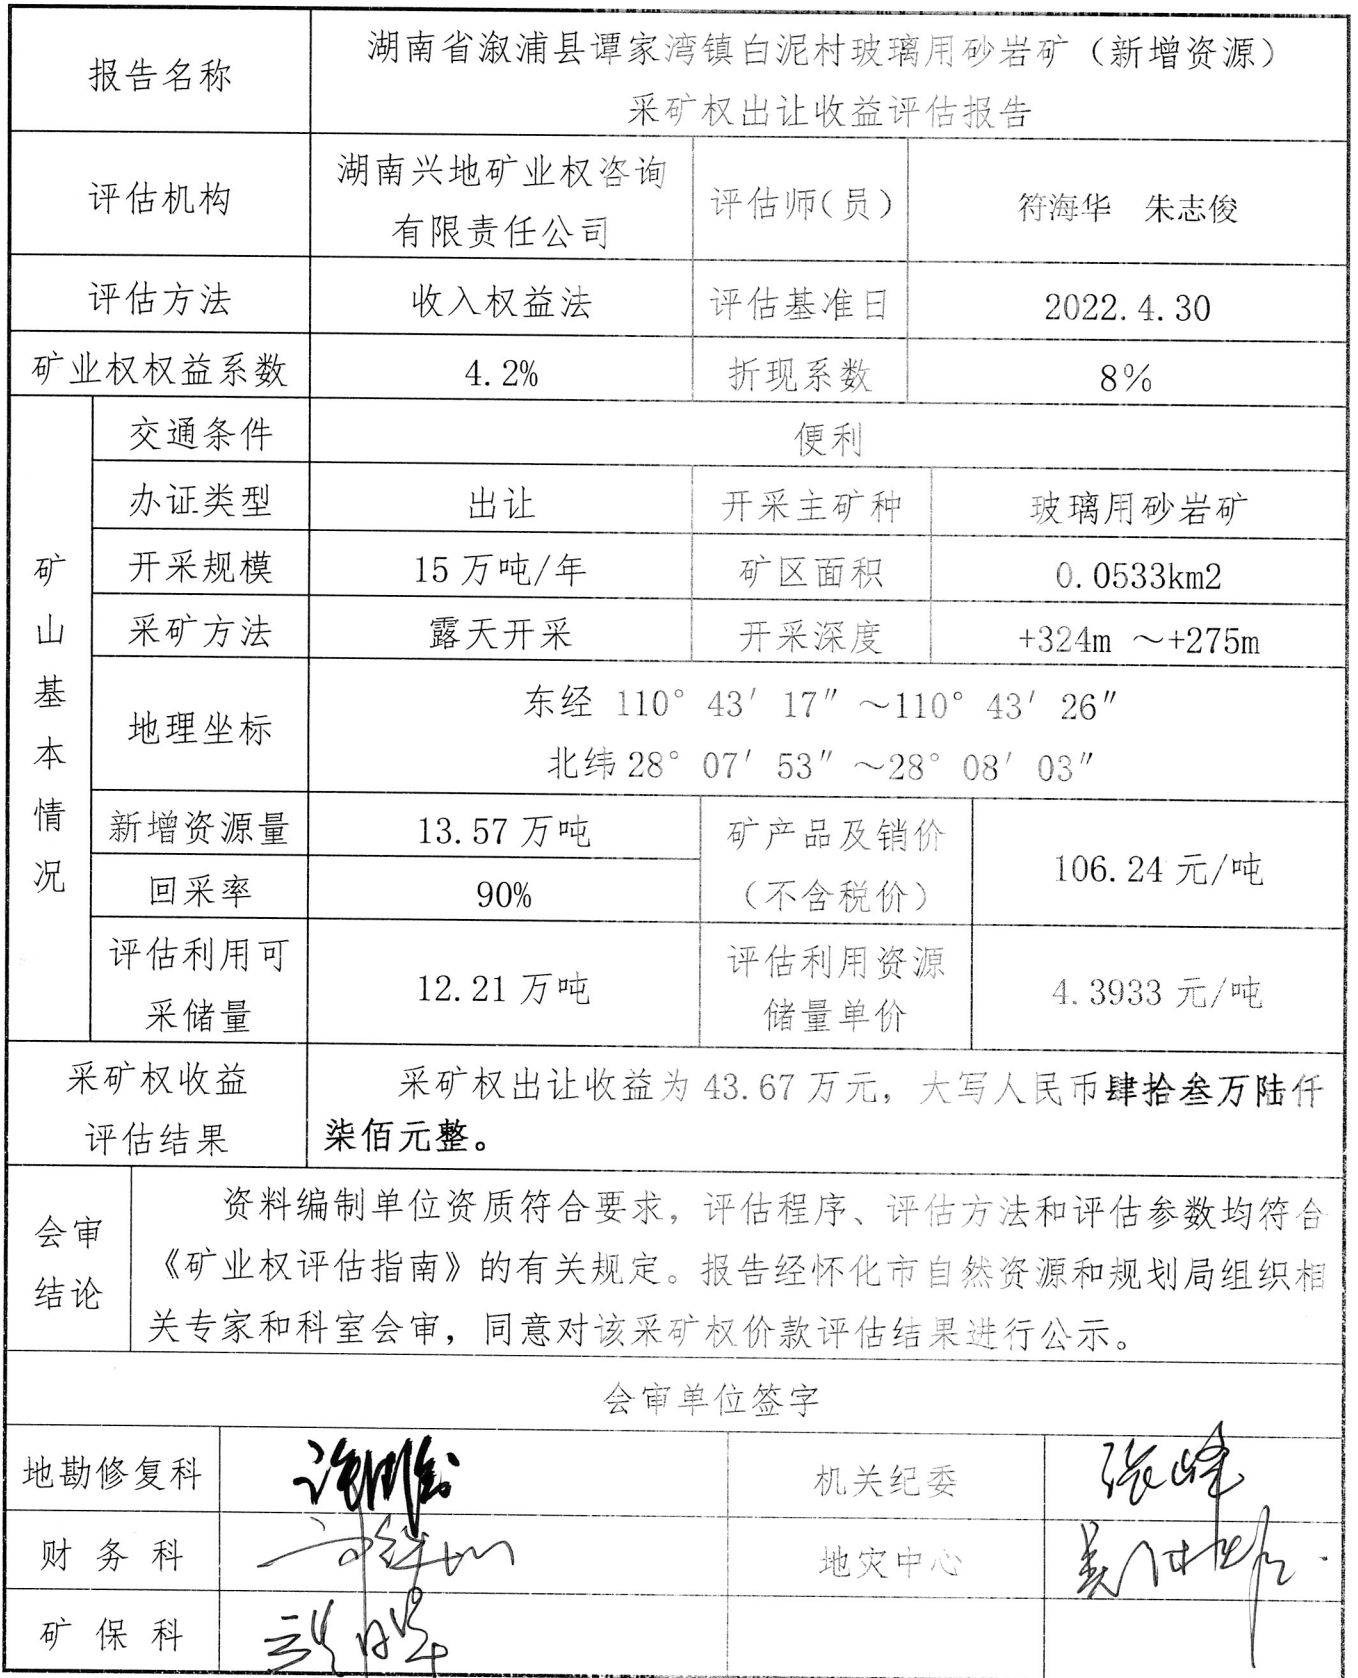 报告名称
湖南省溆浦县谭家湾镇白泥村玻璃用砂岩矿（新增资源）
采矿权出让收益评估报告
评估机构
湖南兴地矿业权咨询
有限责任公司
评估师(员)
符海华 朱志俊
评估方法
收入权益法
评估基准日
2022.4.30
矿业权权益系数
4.2%
折现系数
8%
矿山基本情况
交通条件
便利
办证类型
出让
开采主矿种
玻璃用砂岩矿
开采规模
15 万吨/年
矿区面积
0.0533km2
采矿方法
露天开采
开采深度
+324m ～+275m
地理坐标
东经 110° 43′ 17″ ～110° 43′ 26″
北纬 28° 07′ 53″ ～28° 08′ 03″
新增资源量
13.57 万吨
矿产品及销价
（不含税价）
106.24 元/吨
回采率
90%
评估利用可
采储量
12.21 万吨
评估利用资源
储量单价
4.3933 元/吨
采矿权收益
评估结果
采矿权出让收益为 43.67 万元，大写人民币肆拾叁万陆仟
柒佰元整。
会审
结论
资料编制单位资质符合要求，评估程序、评估方法和评估参数均符合
《矿业权评估指南》的有关规定。报告经怀化市自然资源和规划局组织相
关专家和科室会审，同意对该采矿权价款评估结果进行公示。
会审单位签字
地勘修复科
机关纪委
张峰
财务科
地灾中心
矿保科